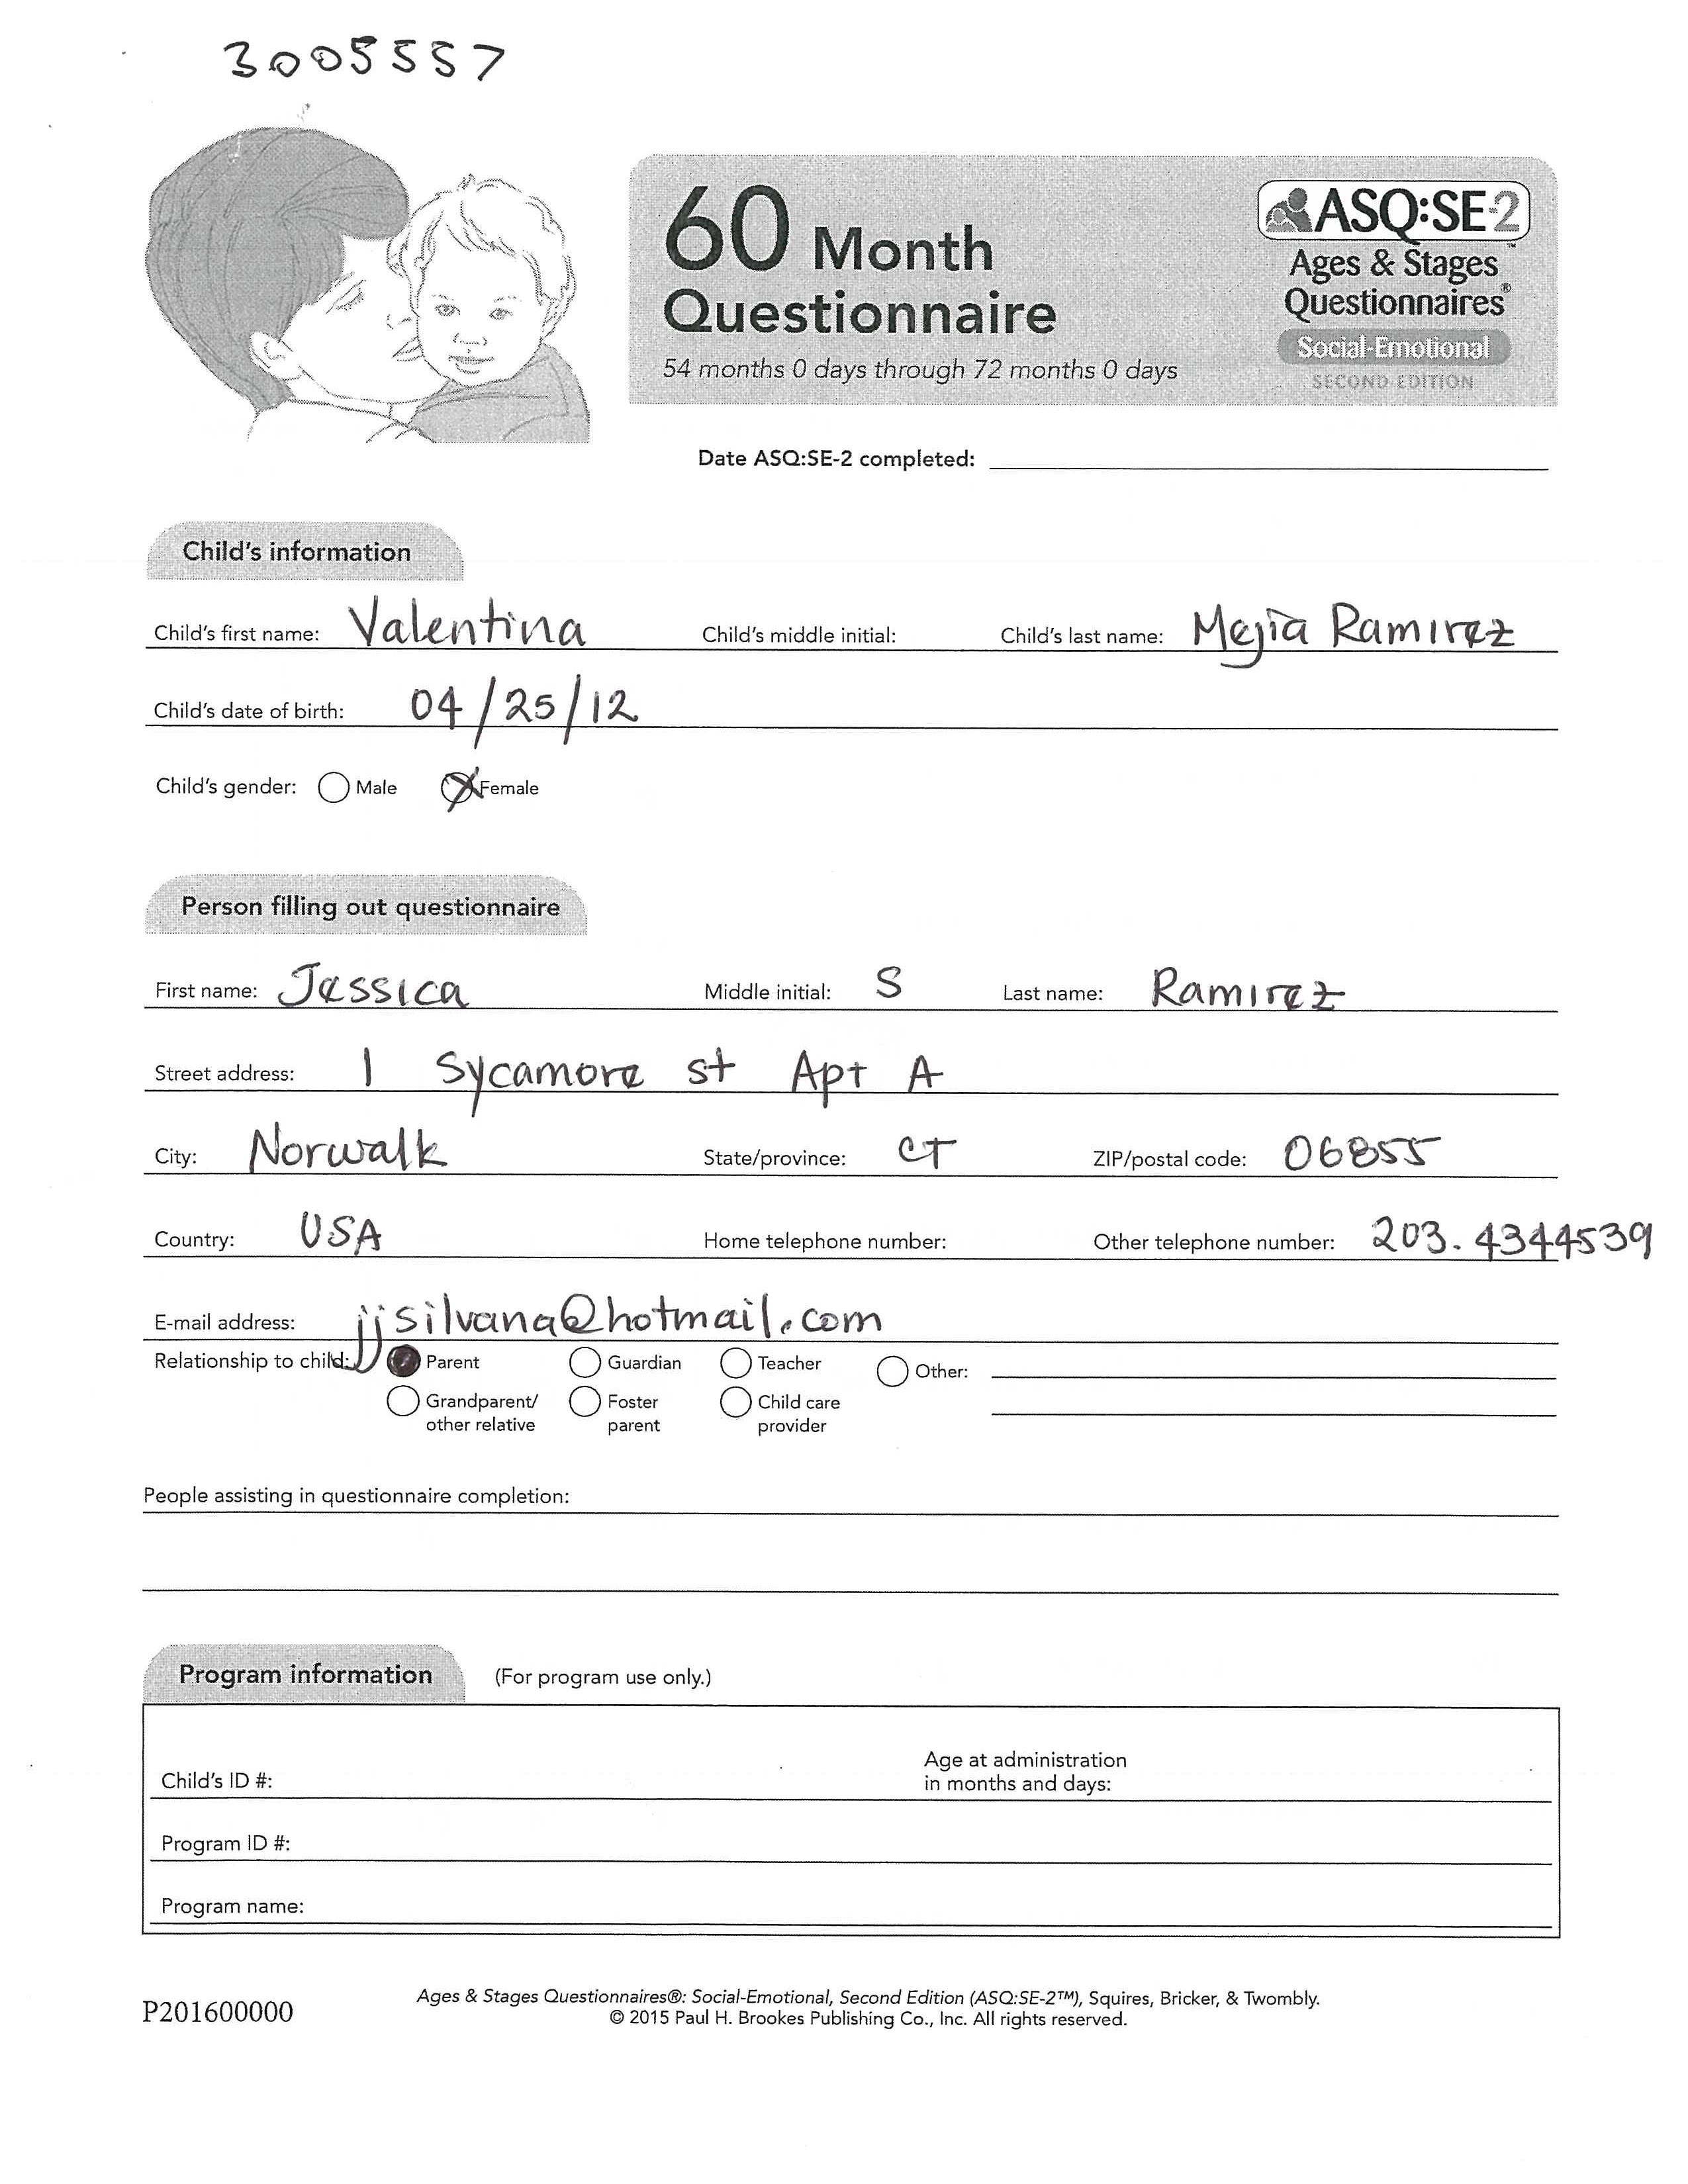 3005557
60 Month
Questionnaire
54 months 0 days through 72 months 0 days
ASQ:SE-2™
Ages & Stages
Questionnaires®
Social-Emotional
SECOND EDITION
Date ASQ:SE-2 completed:
Child's information
Child's first name: Valentina Child's middle initial: Child's last name: Mejia Ramirez
Child's date of birth: 04/25/12
Child's gender: Male Female
Person filling out questionnaire
First name: Jessica Middle initial: S Last name: Ramirez
Street address: 1 Sycamore st Apt A
City: Norwalk State/province: CT ZIP/postal code: 06855
Country: USA Home telephone number: Other telephone number: 203.4344539
E-mail address: jjsilvana@hotmail.com
Relationship to child: Parent Guardian Teacher Other:
Grandparent/ Foster Child care
other relative parent provider
People assisting in questionnaire completion:
Program information (For program use only.)
Age at administration
Child's ID #: in months and days:
Program ID #:
Program name:
P201600000
Ages & Stages Questionnaires®: Social-Emotional, Second Edition (ASQ:SE-2™), Squires, Bricker, & Twombly.
© 2015 Paul H. Brookes Publishing Co., Inc. All rights reserved.